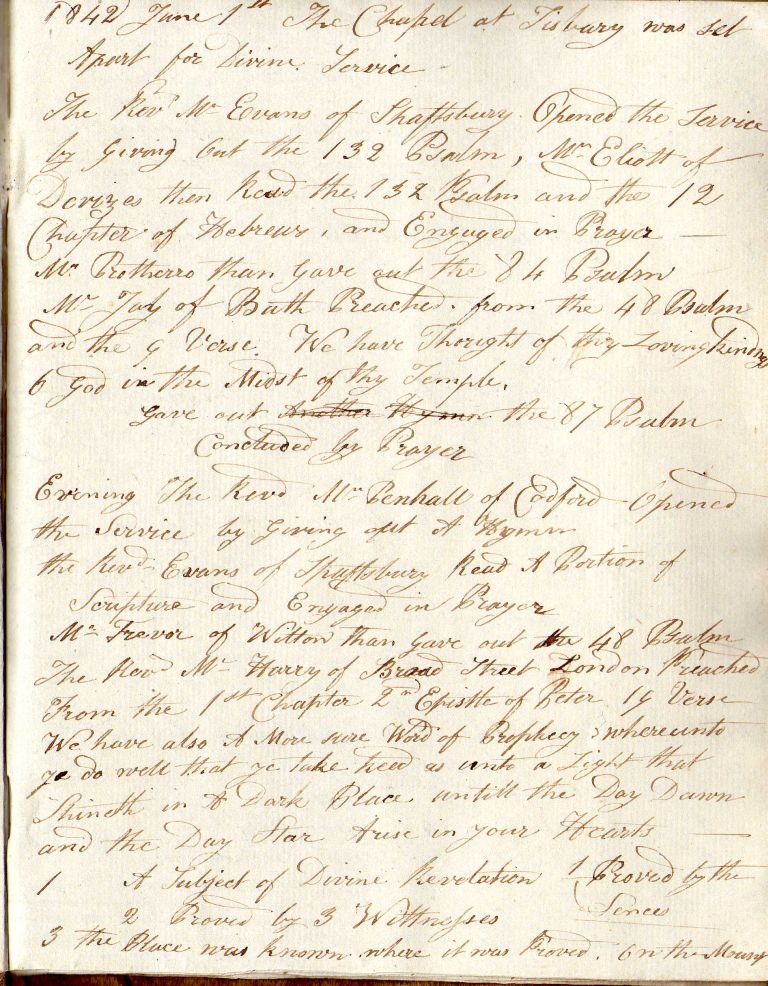 1842 June 1st The Chapel at Tisbury was set
Apart for Divine Service
The Revd Mr Evans of Shaftsbury Opened the Service
by Giving out the 132 Psalm, Mr Eliott of
Devizes then Read the 132 Psalm and the 12
Chapter of Hebrews, and Engaged in Prayer —
Mr Protherro than Gave out the 84 Psalm
Mr Jay of Bath Preached from the 48 Psalm
and the 9 Verse. We have Thought of thy Lovingkindness
O God in the Midst of thy Temple.
Gave out Another Hymn the 87 Psalm
Concluded by Prayer
Evening The Revd Mr Penhall of Codford Opened
the Service by Giving out A Hymn
the Revd Evans of Shaftsbury Read A Portion of
Scripture and Engaged in Prayer
Mr Trevor of Wilton than Gave out the 48 Psalm
The Revd Mr Harry of Broad Street London Preached
From the 1st Chapter 2n Epistle of Peter 19 Verse
We have also A More sure Word of Prophecy whereunto
ye do well that ye take heed as unto a Light that
Shineth in A Dark Place untill the Day Dawn
and the Day Star Arise in your Hearts —
1 A Subject of Divine Revelation 1 Proved by the
Sences
2 Proved by 3 Wittnesses
3 the Place was known where it was Proved. On the Mount